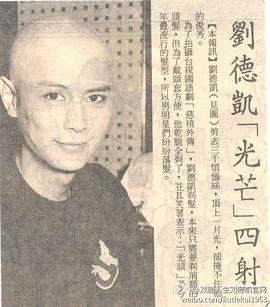 劉德凱「光芒」四射
【本報訊】劉德凱（見圖）剪去三千煩惱絲，頂上一片光，卻掩不住
的俊秀。
為了拍攝台視國語劇「慈禧外傳」，劉德凱剃髮，本來只需要剃前額的
頭髮，但為了戴頭套方便，他乾脆全剃了，並且笑著表示：「光頭」是
年最流行的髮型，所以男明星們紛紛落髮。
weibo.com/liudekai195